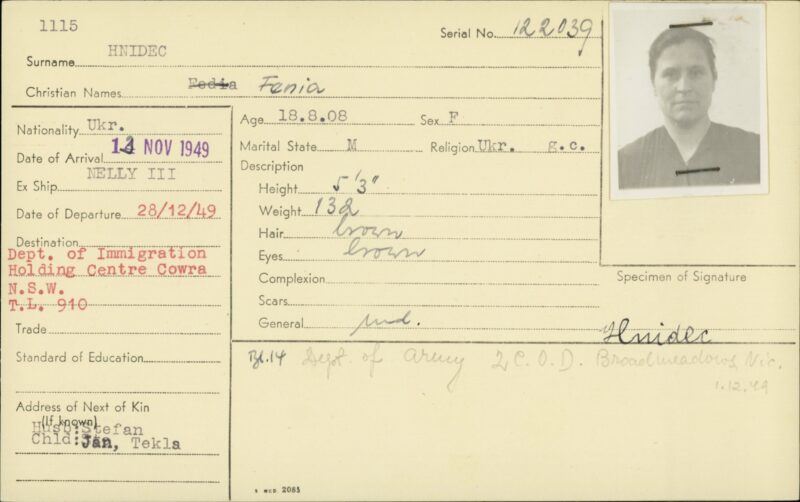 1115
Surname HNIDEC
Serial No. 122039
Christian Names Fedia Fenia
Nationality Ukr.
Date of Arrival 13 NOV 1949
Ex Ship NELLY III
Date of Departure 28/12/49
Destination
Dept. of Immigration
Holding Centre Cowra
N.S.W.
T.L. 910
Trade
Standard of Education
Address of Next of Kin
(If known)
Husb: Stefan
Chld: Jan, Tekla
Age 18.8.08 Sex F
Marital State M Religion Ukr. g.c.
Description
Height 5'3"
Weight 132
Hair brown
Eyes brown
Complexion
Scars
General
Specimen of Signature
Hnidec
Bl.14 Dept. of Army 2 C.O.D. Broadmeadows Vic.
1.12.49
2085